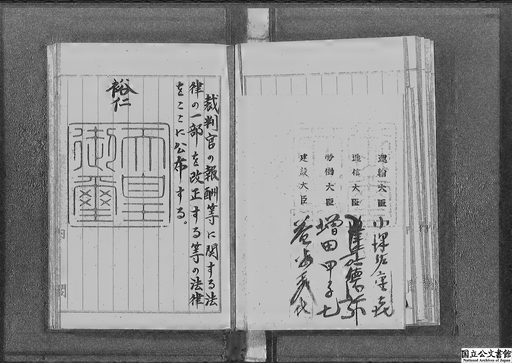 運輸大臣 小澤佐重喜
遞信大臣 降旗德弥
勞働大臣 増田甲子七
建設大臣 益谷秀次
裁判官の報酬等に関する法
律の一部を改正する等の法律
をここに公布する。
裕仁
天皇
御璽
内閣
国立公文書館
National Archives of Japan